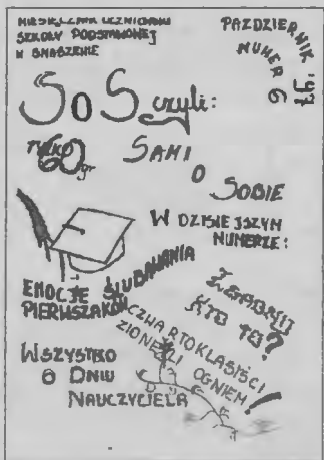 MIESIĘCZNIK UCZNIOWSKI
SZKOŁY PODSTAWOWEJ
W
PAŹDZIERNIK '97
NUMER 6
SOS czyli:
TYLKO
60 gr
SAMI
O
SOBIE
W DZISIEJSZYM
NUMERZE:
EMOCJE ŚLUBOWANIA
PIERWSZAKÓW
ZGADNIJ
KTO TO?
CZWARTOKLASIŚCI
ZIONĘLI OGNIEM!
WSZYSTKO
O DNIU
NAUCZYCIELA